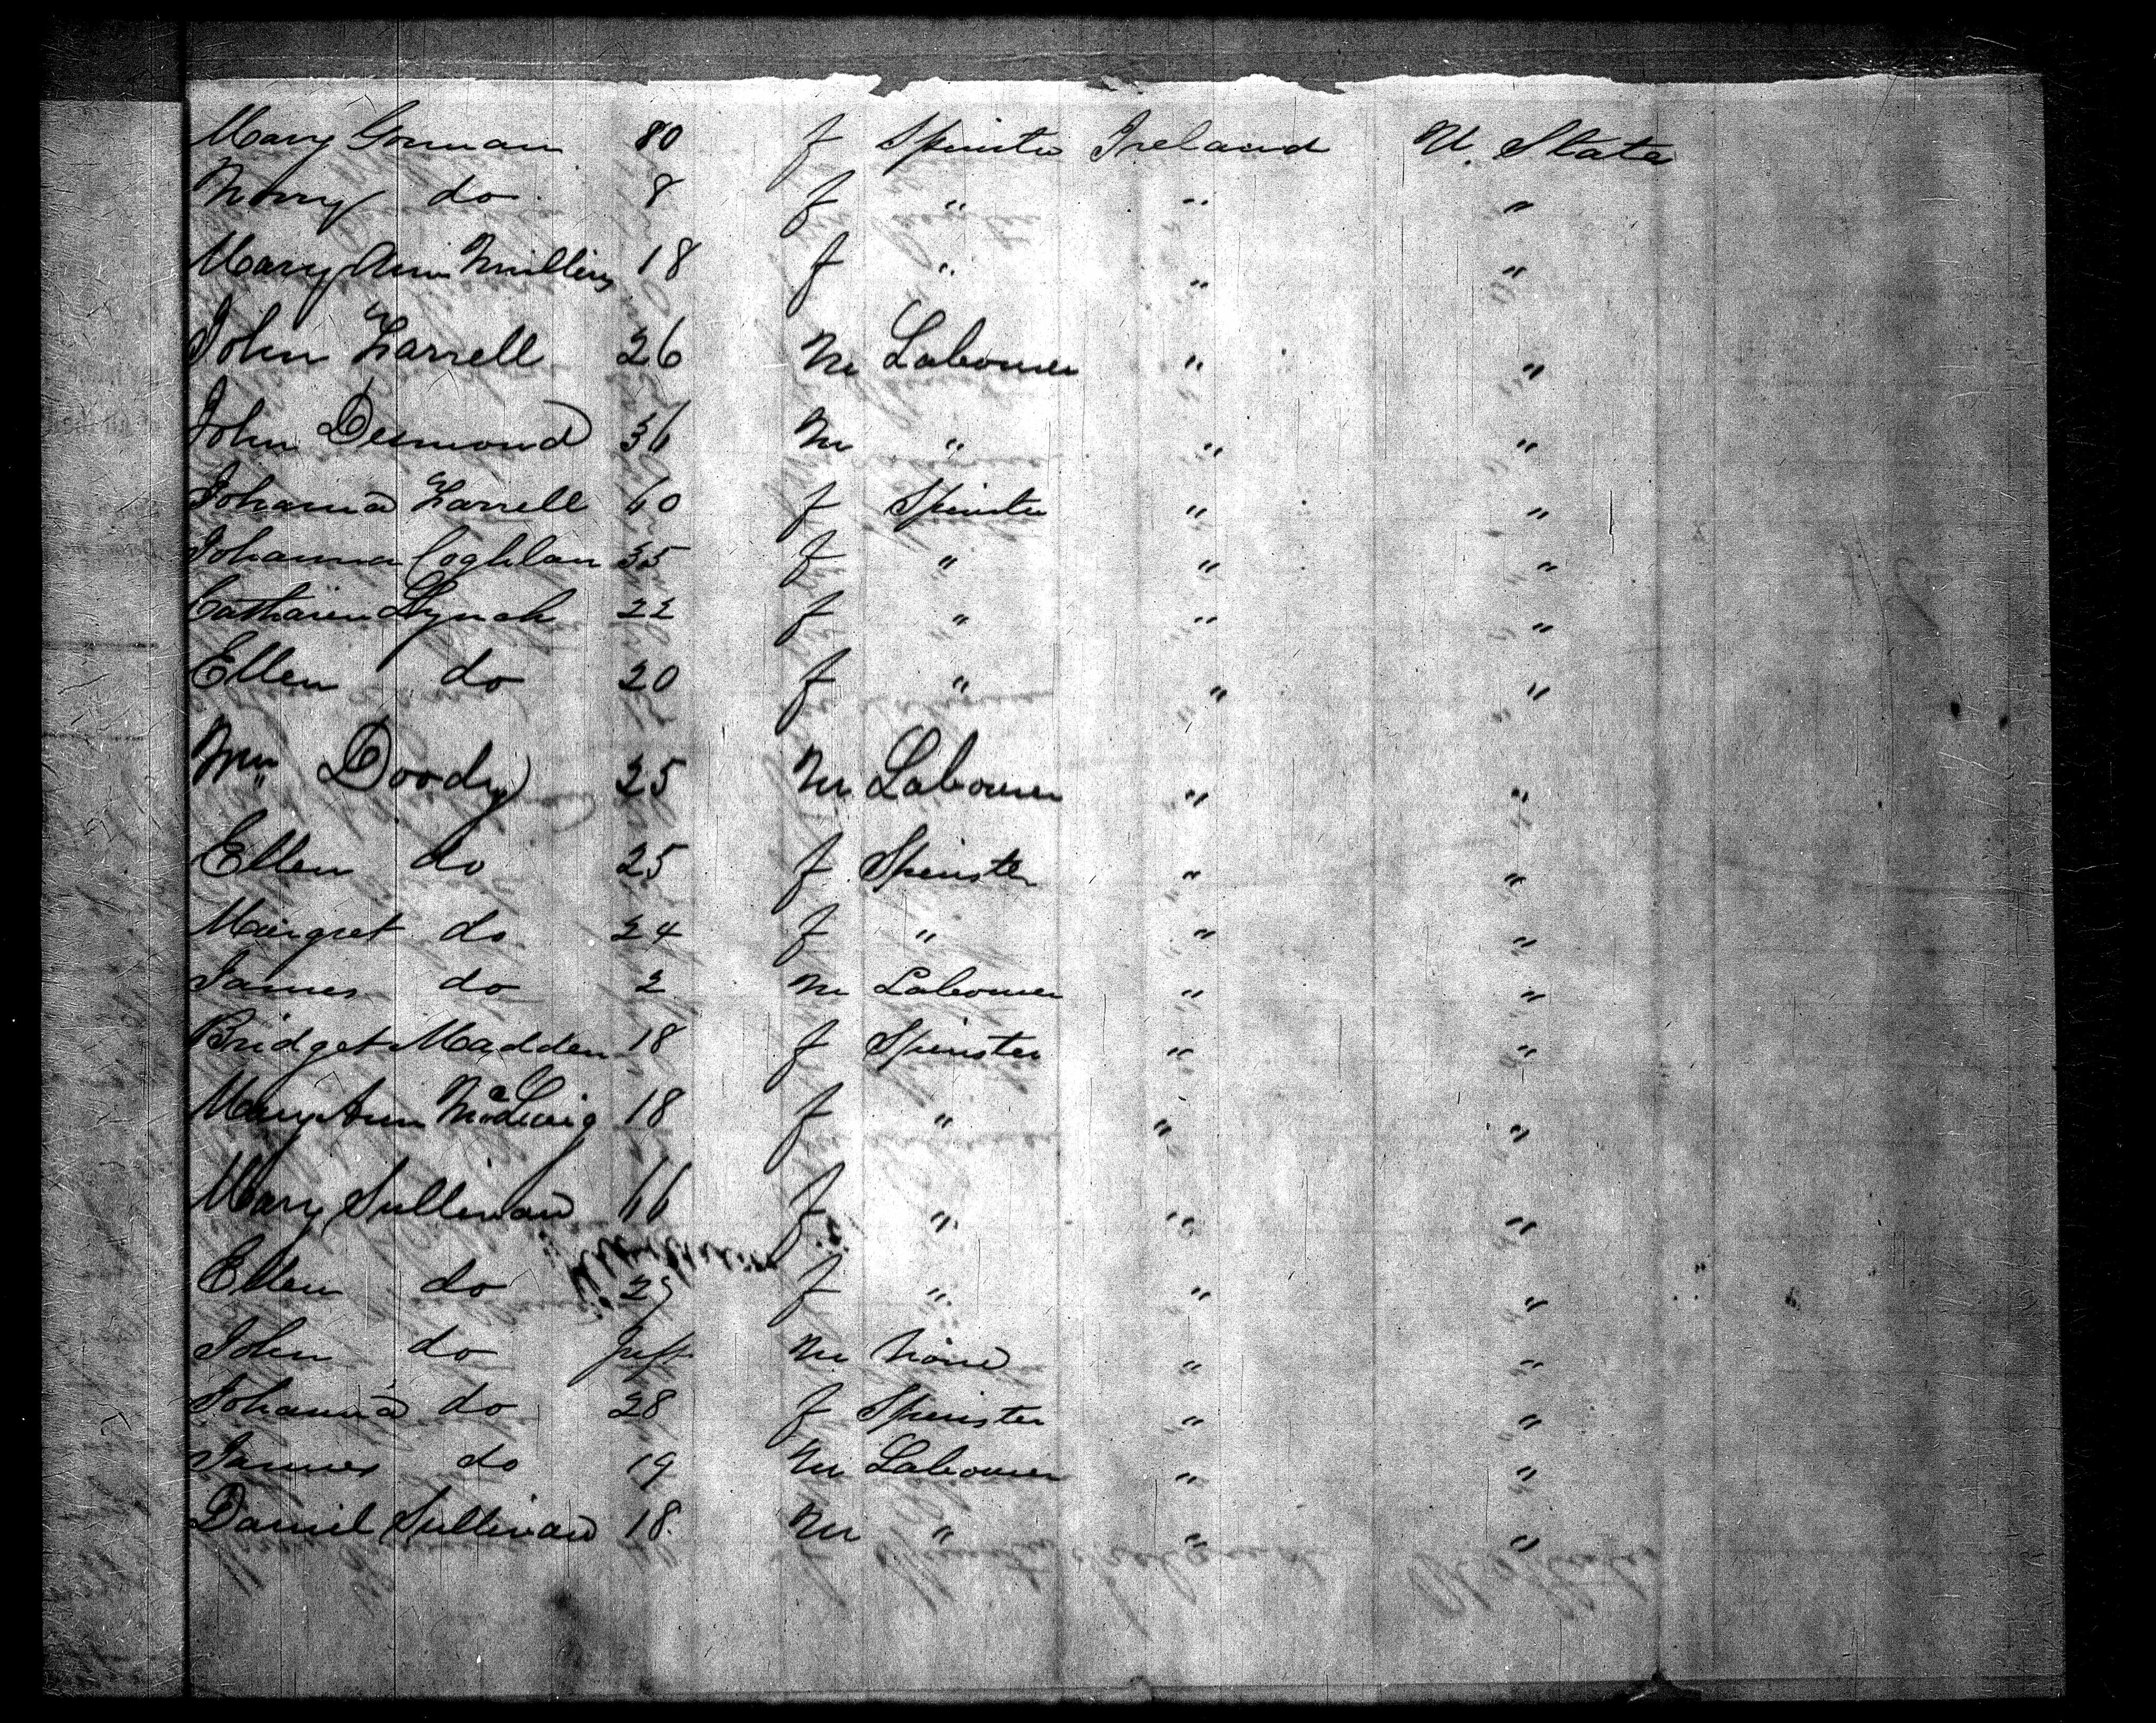 Mary Gorman 80 f Spinster Ireland U. States
Norry do 8 f " " "
Mary Ann Mullins 18 f " " "
John Farrell 26 M Labourer " "
John Desmond 36 M " " "
Johanna Farrell 60 f Spinster " "
Johanna Coghlan 35 f " " "
Catharien Lynch 22 f " " "
Ellen do 20 f " " "
Wm Doody 25 M Labourer " "
Ellen do 25 f Spinster " "
Margret do 24 f " " "
James do 2 M Labourer " "
Bridget Madden 18 f Spinster " "
Mary Ann 18 f " " "
Mary Sullivan 66 f " " "
Ellen do 29 f " " "
John do Inft M None " "
Johanna do 28 f Spinster " "
James do 19 M Labourer " "
Daniel Sullivan 18 M " " "